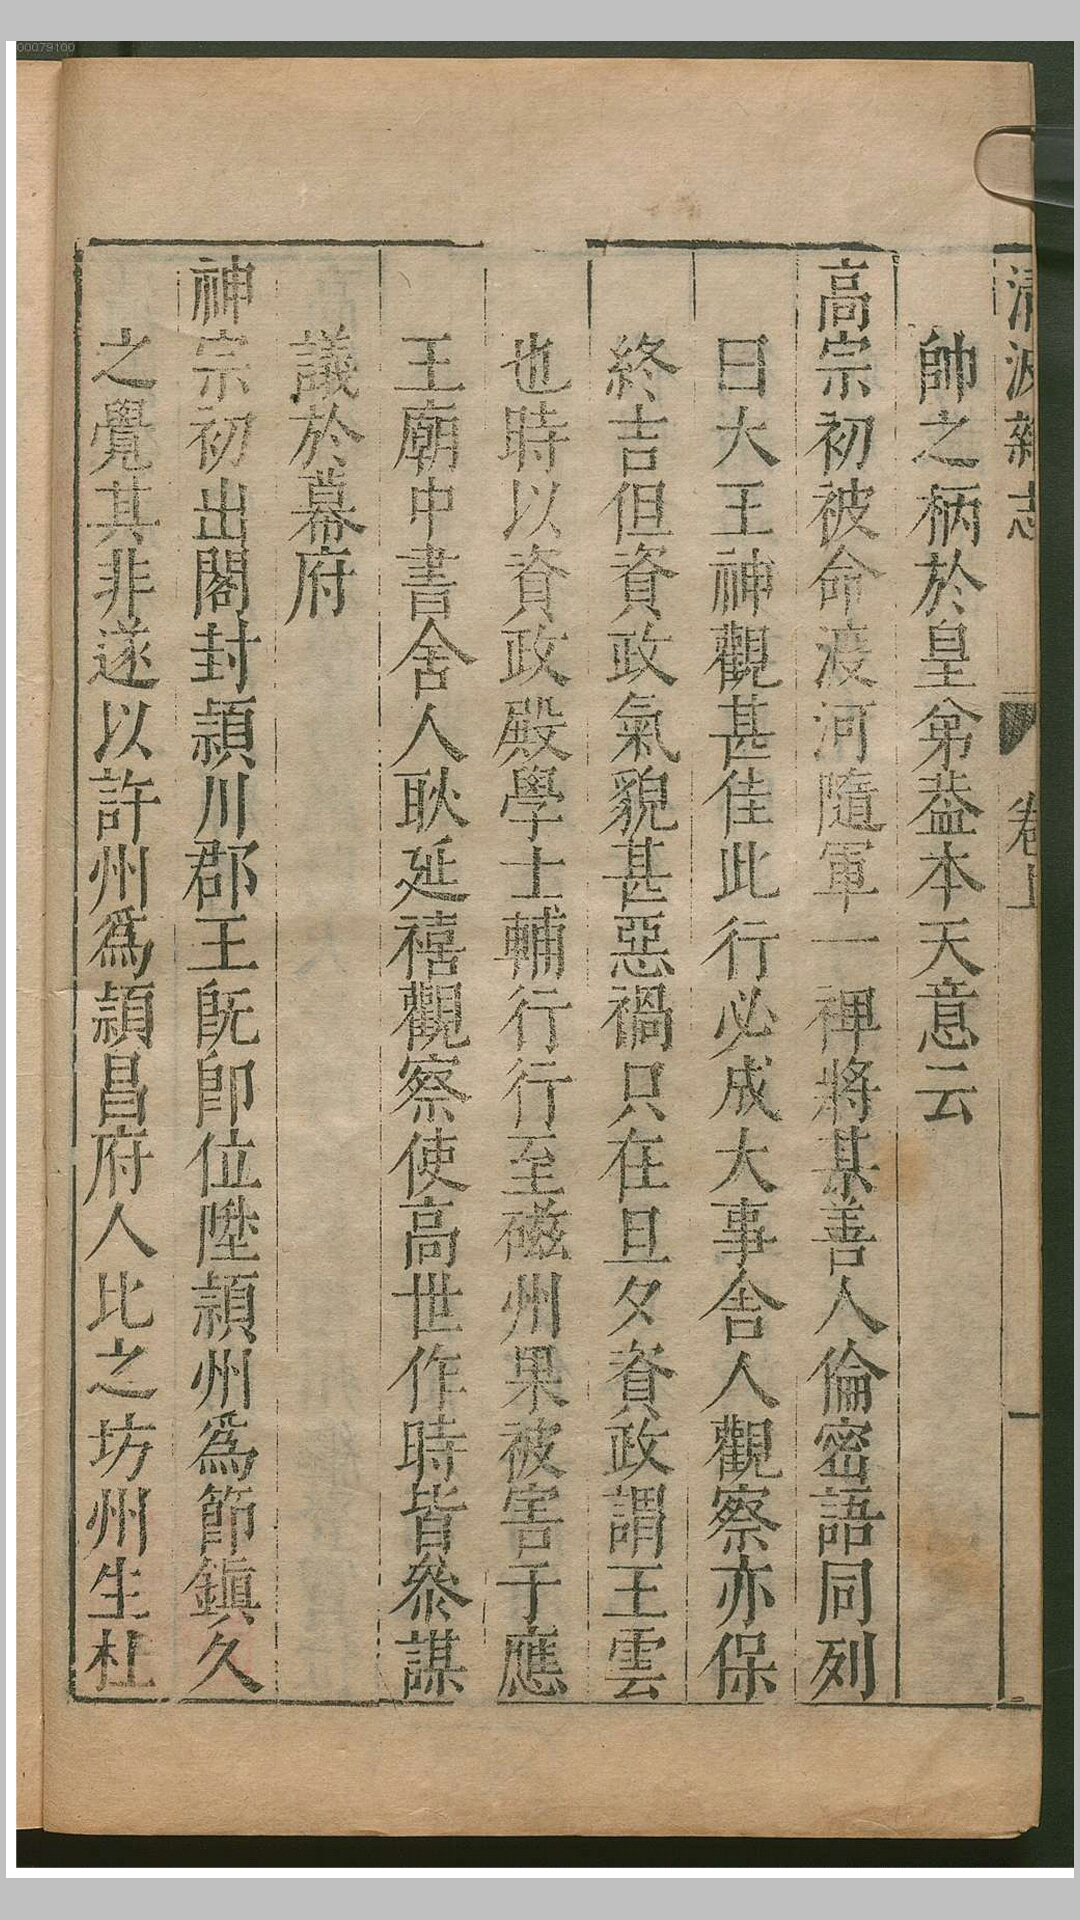 00079100
清波雜志 卷上 一
帥之柄於皇弟葢本天意云
高宗初被命渡河隨軍一裨將某善人倫密語同列
曰大王神觀甚佳此行必成大事舍人觀察亦保
終吉但資政氣貌甚惡禍只在旦夕資政謂王雲
也時以資政殿學士輔行行至磁州果被害于應
王廟中書舍人耿延禧觀察使高世作時皆叅謀
議於幕府
神宗初出閣封頴川郡王旣卽位陞頴州爲節鎭久
之覺其非遂以許州爲頴昌府人比之坊州生杜